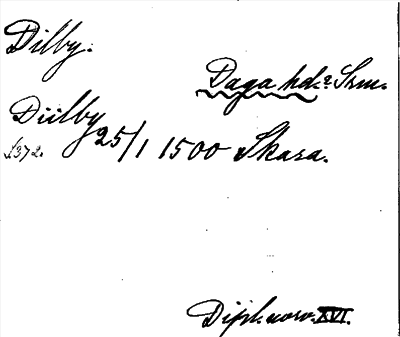 Dilby.
Daga hd.? Srm.
Diilby 25/1 1500 Skara.
s. 372.
Dipl. norv. XVI.